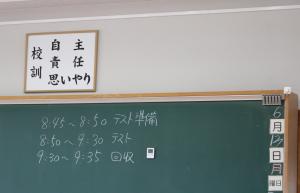 校訓
自主
責任
思いやり
8:45～8:50 テスト準備
8:50～9:30 テスト
9:30～9:35 回収
6
月
日
月
曜日